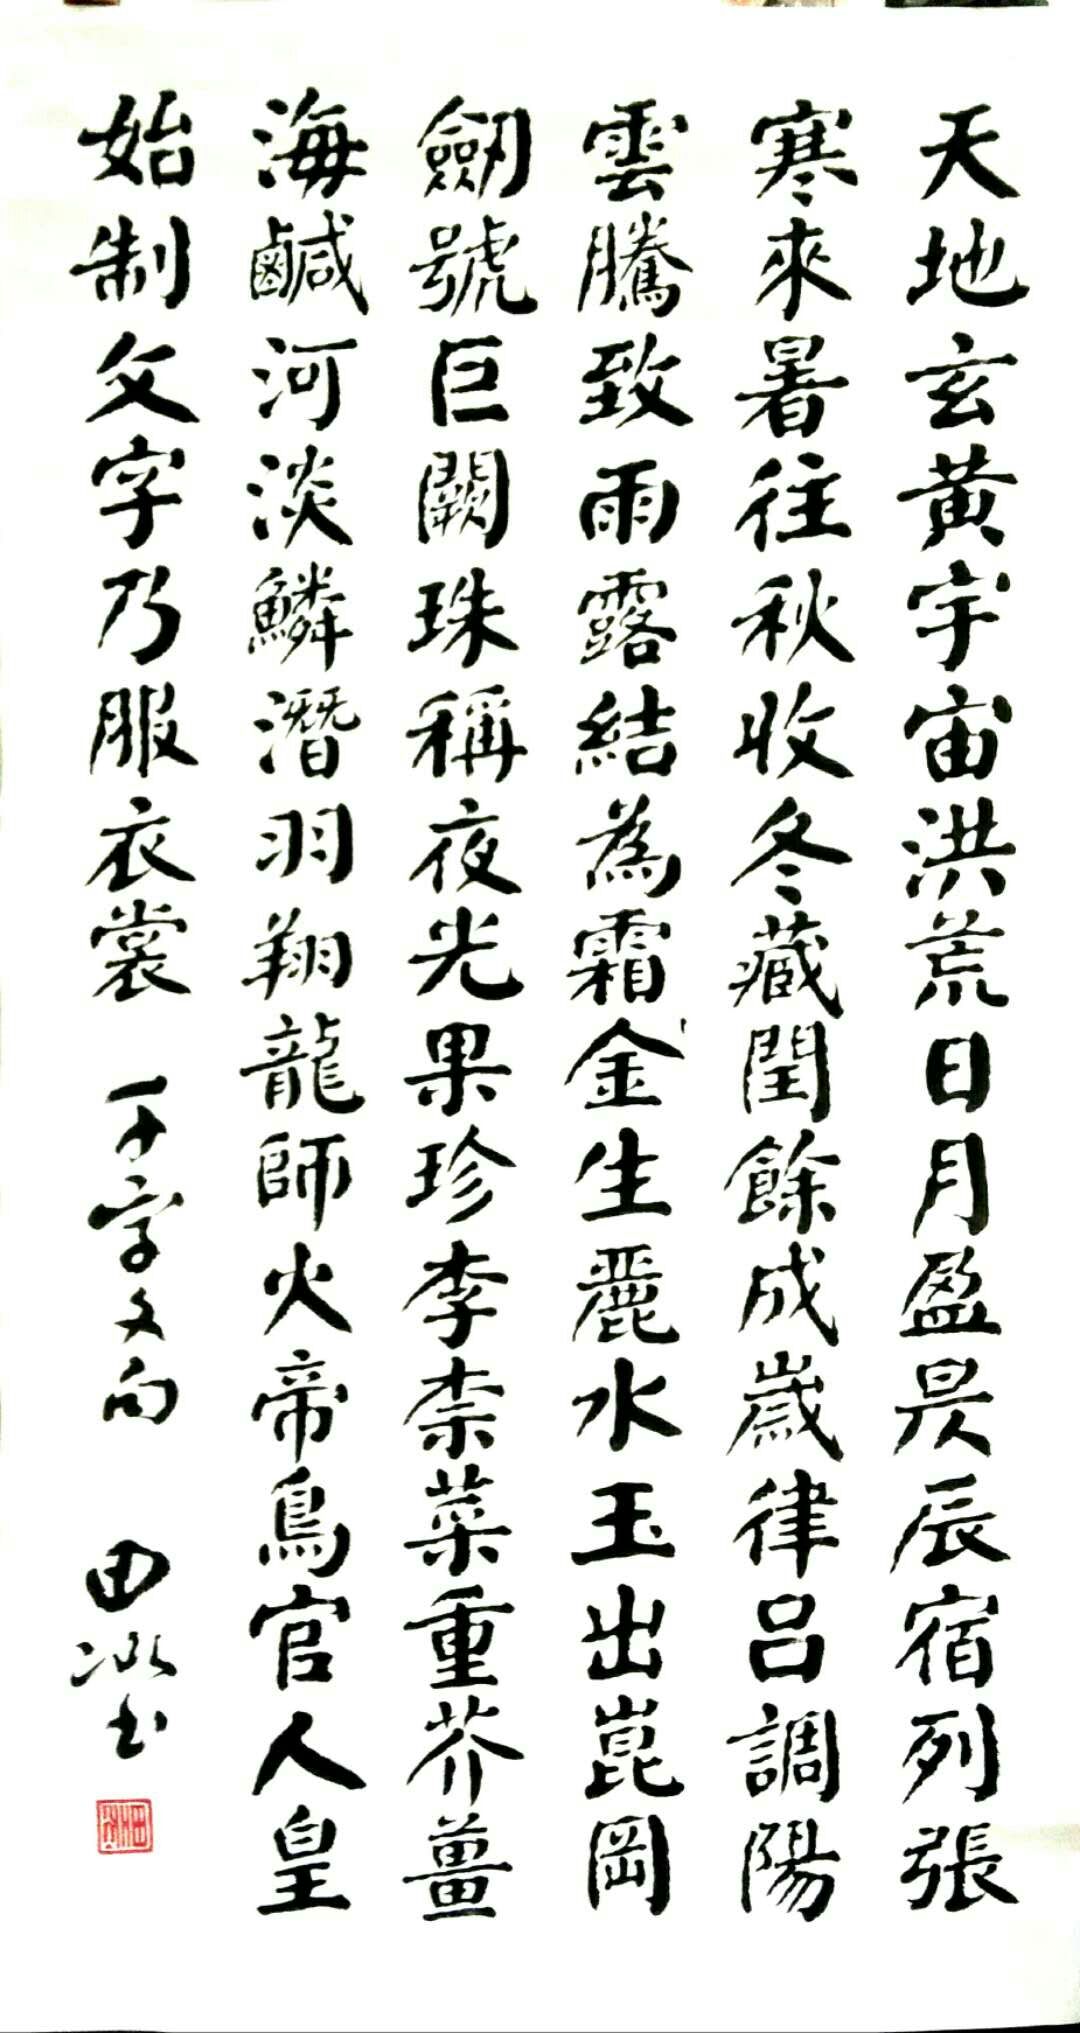 天地玄黄宇宙洪荒日月盈昃辰宿列張
寒來暑往秋收冬藏閏餘成歲律吕調陽
雲騰致雨露結為霜金生麗水玉出崑岡
劒號巨闕珠稱夜光果珍李柰菜重芥薑
海鹹河淡鱗潛羽翔龍師火帝鳥官人皇
始制文字乃服衣裳 千字文句 田泓书